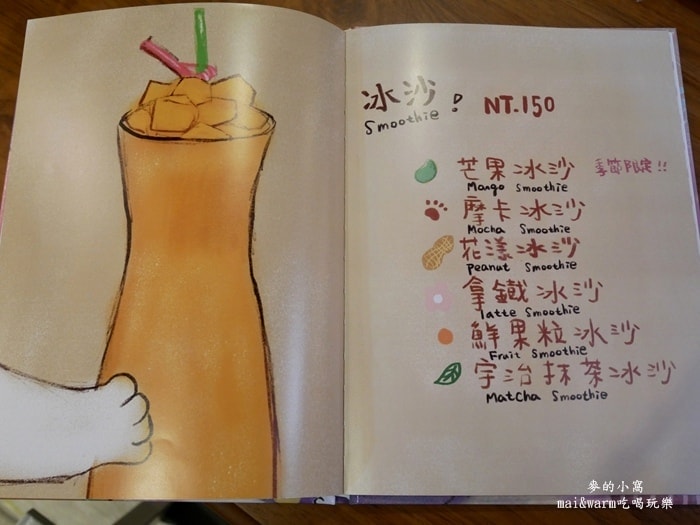 冰沙!
Smoothie
NT.150
芒果冰沙 季節限定!!
Mango Smoothie
摩卡冰沙
Mocha Smoothie
花漾冰沙
Peanut Smoothie
拿鐵冰沙
latte Smoothie
鮮果粒冰沙
Fruit Smoothie
宇治抹茶冰沙
Matcha Smoothie
麥的小窩
mai&warm吃喝玩樂